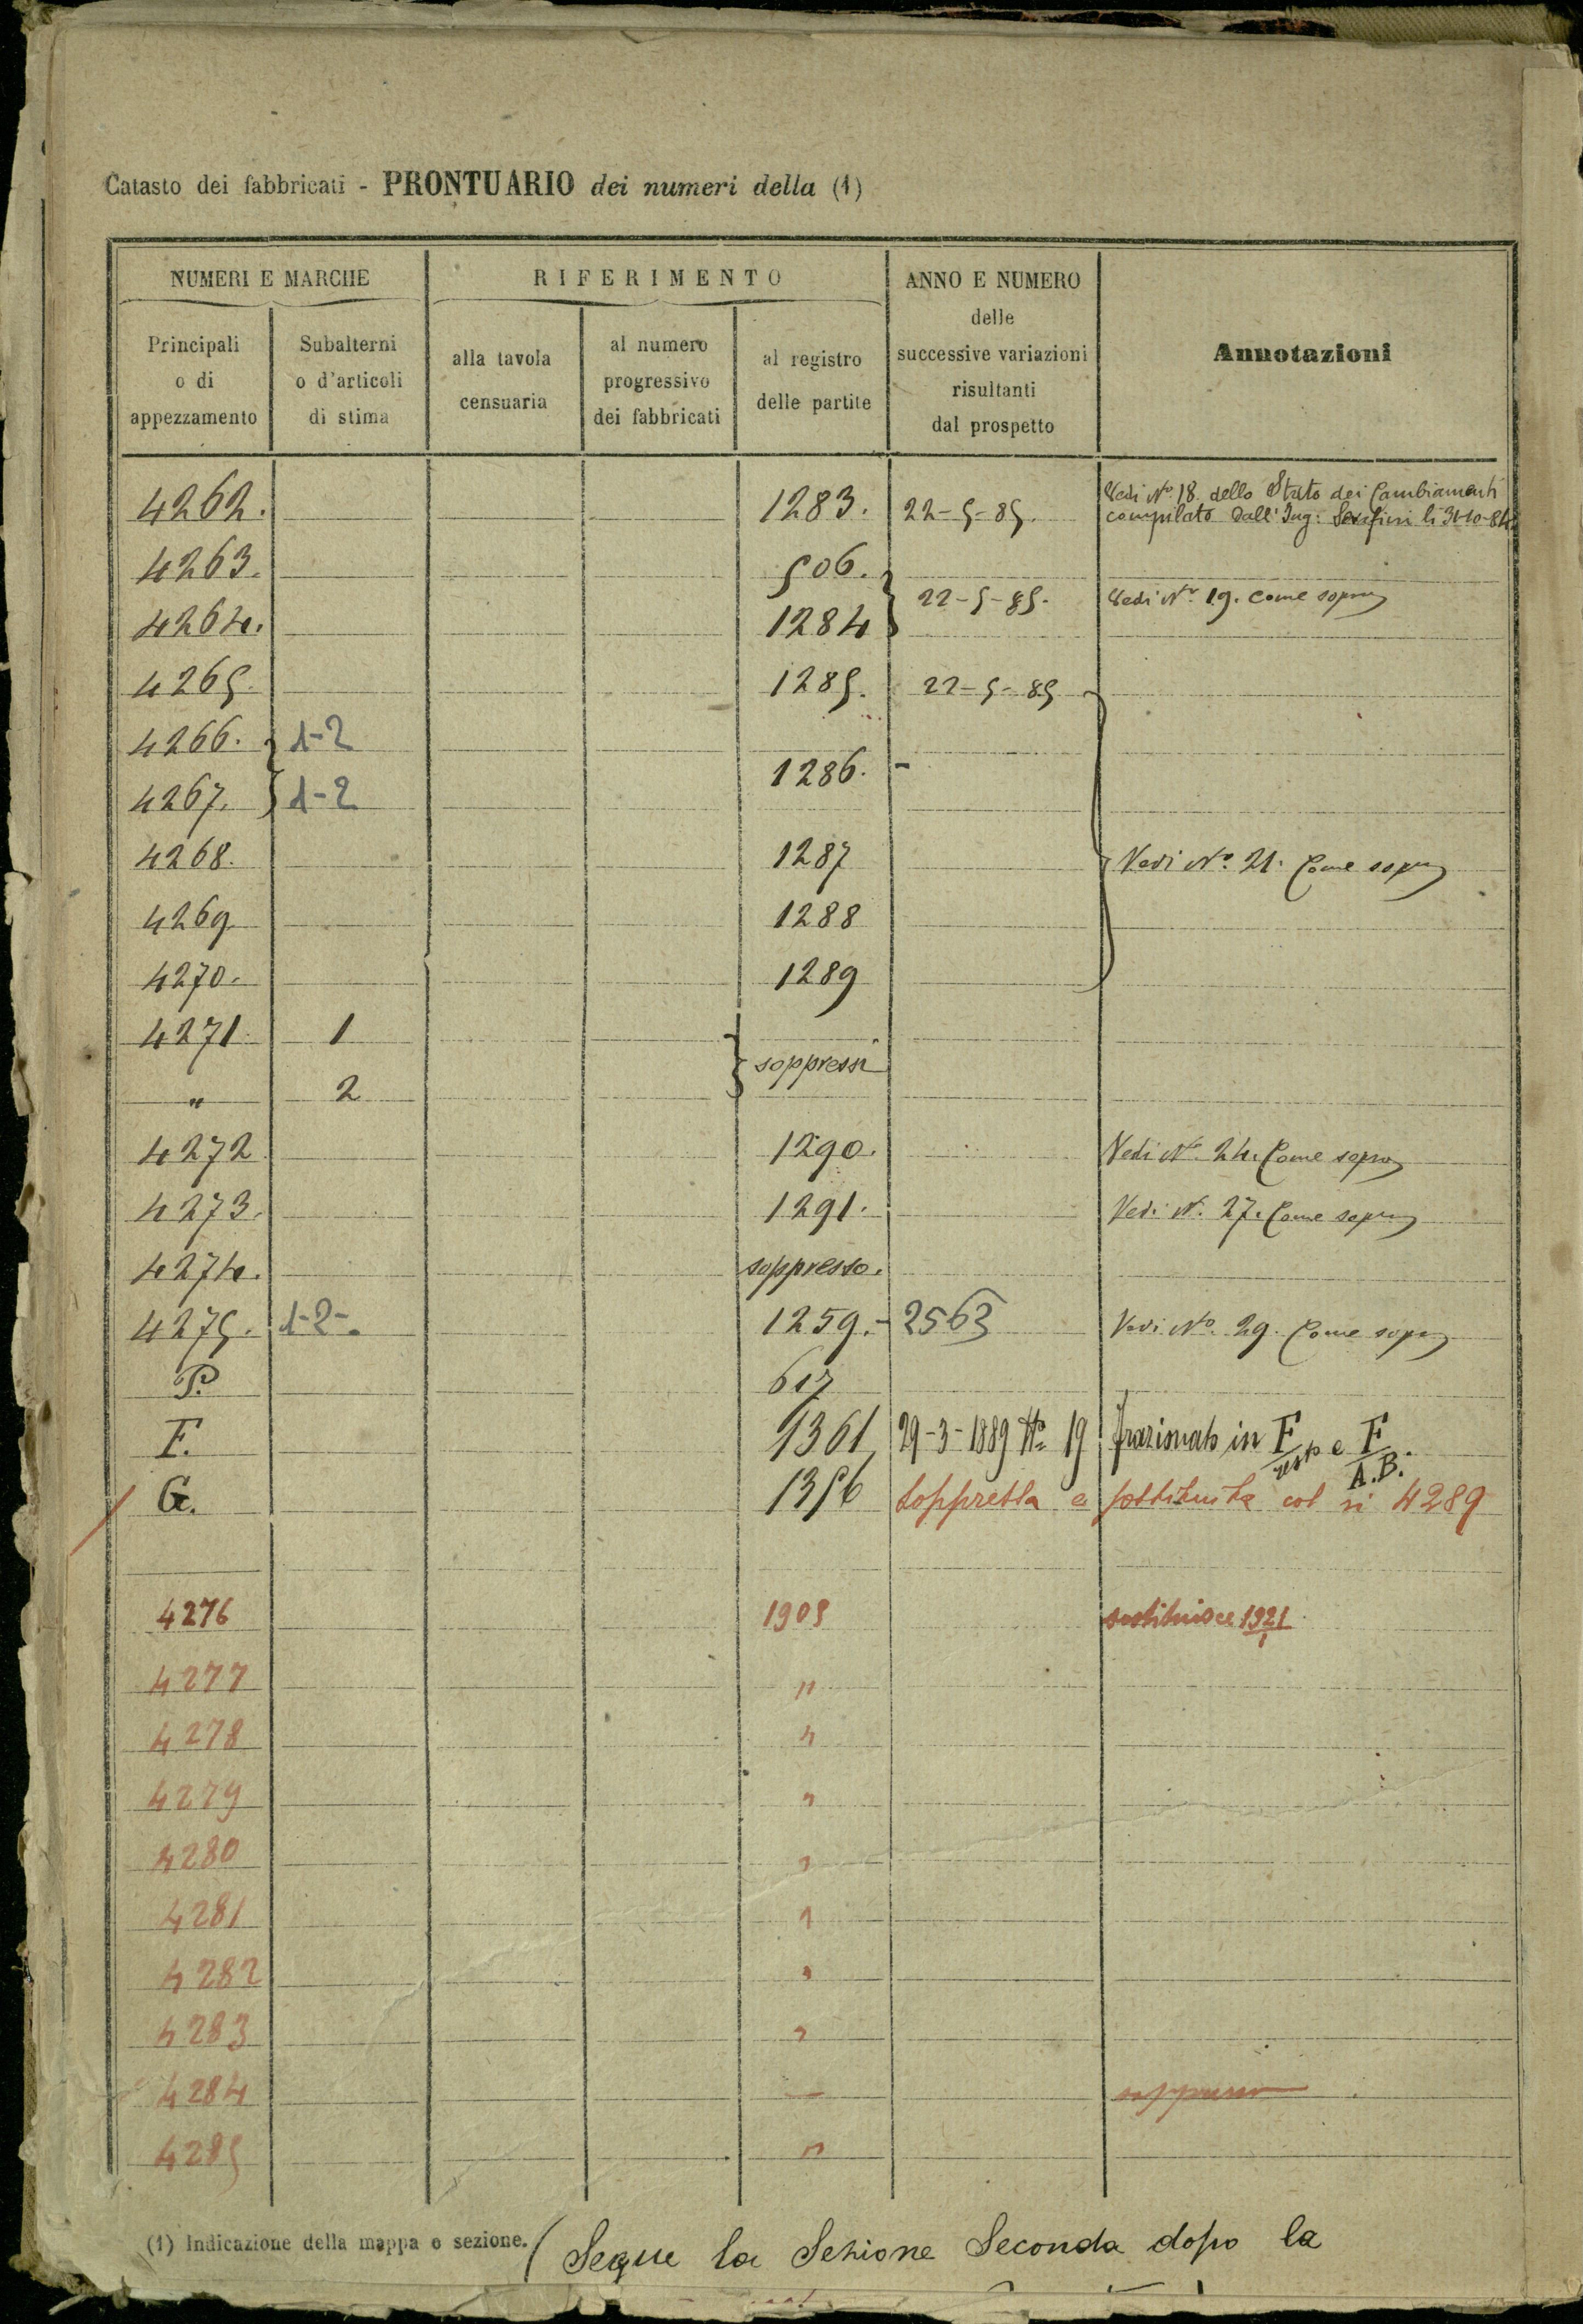 Catasto dei fabbricati - PRONTUARIO dei numeri della (1)
NUMERI E MARCHE
RIFERIMENTO
ANNO E NUMERO
delle
successive variazioni
risultanti
dal prospetto
Annotazioni
Principali
o di
appezzamento
Subalterni
o d'articoli
di stima
alla tavola
censuaria
al numero
progressivo
dei fabbricati
al registro
delle partite
4262. 1283. 22-5-85. Vedi N.º 18. dello Stato dei Cambiamenti
compilato dall' Ing: Serafini li 31-10-84
4263. 506.
22-5-85. Vedi N.º 19. Come sopra
4264. 1284
4265. 1285. 22-5-85
4266. 1-2
1286. -
4267. 1-2
4268. 1287 Vedi N.º 21. Come sopra
4269 1288
4270. 1289
4271. 1
soppressi
" 2
4272 1290. Vedi N.º 24. Come sopra
4273. 1291. Vedi N. 27. Come sopra
4274. soppresso.
4275. 1-2-. 1259.- 2563 Vedi N.º 29. Come sopra
P. 617
F. 1361 29-3-1889 Nº 19 frazionato in F/resp e F/A.B.
G. 1356 soppressa e sostituita col n 4289
4276 1905 sostituisce 1921/1
4277 "
4278 "
4279 "
4280 "
4281 "
4282 "
4283 "
4284 — soppresso
4285 "
(1) Indicazione della mappa o sezione. ( Segue la Sezione Seconda dopo la